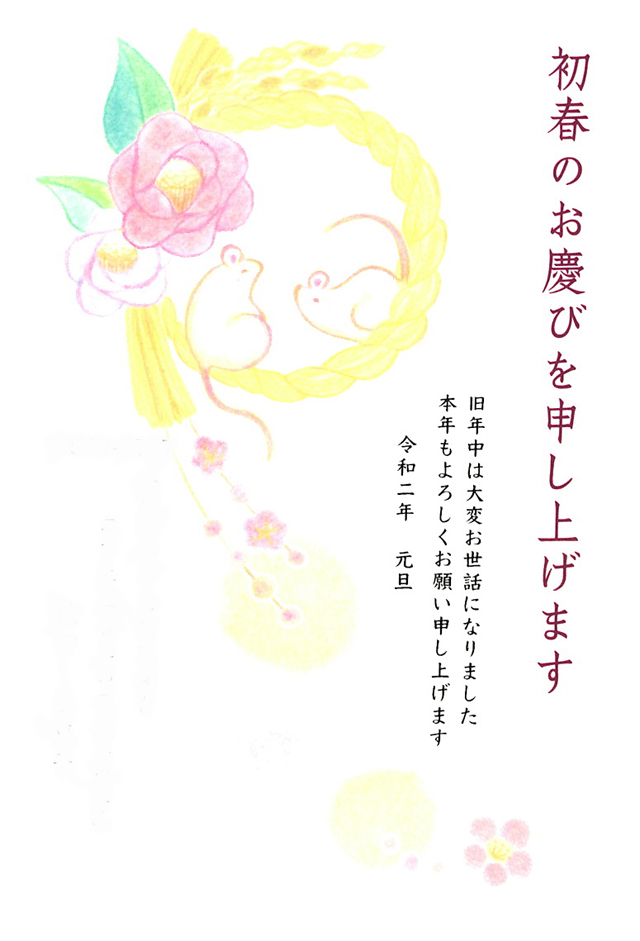 初春のお慶びを申し上げます
旧年中は大変お世話になりました
本年もよろしくお願い申し上げます
令和二年　元旦